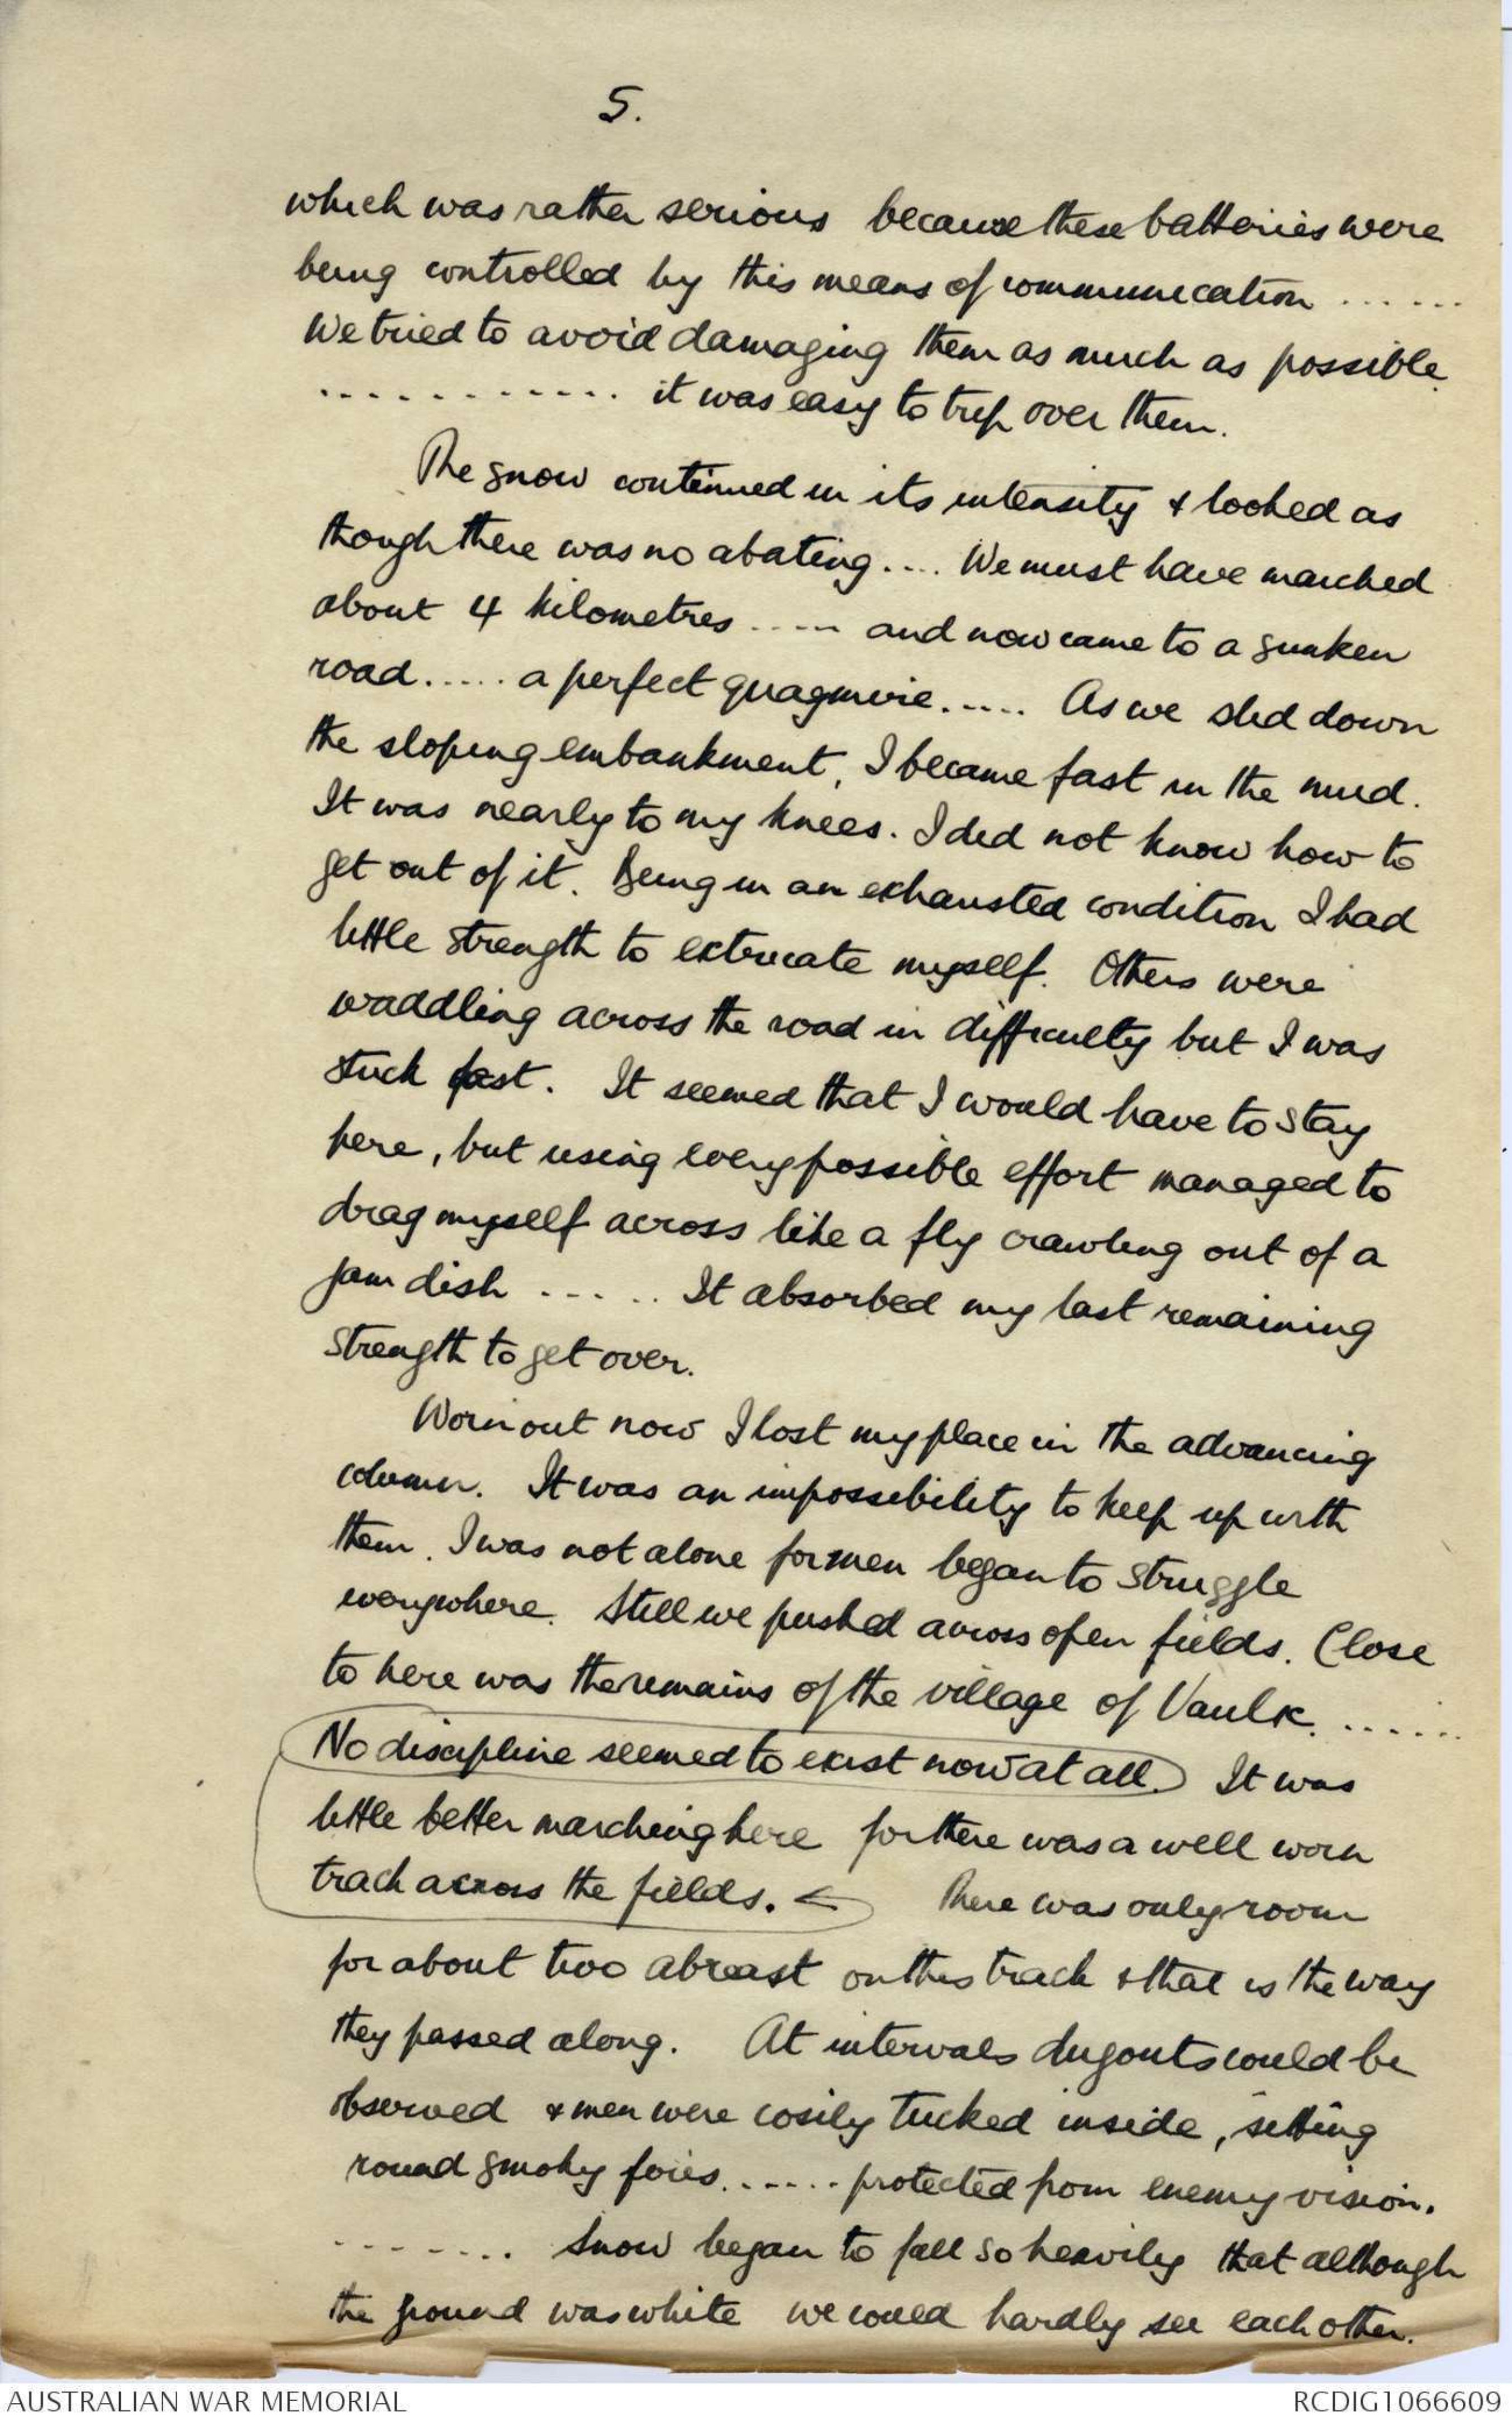 5.
which was rather serious because these batteries were
being controlled by this means of communication ......
We tried to avoid damaging them as much as possible
............ it was easy to trip over them.
The snow continued in its intensity & looked as
though there was no abating.... We must have marched
about 4 kilometres ..... and now came to a sunken
road ..... a perfect quagmire ..... As we slid down
the sloping embankment, I became fast in the mud.
It was nearly to my knees. I did not know how to
get out of it. Being in an exhausted condition I had
little strength to extricate myself. Others were
waddling across the road in difficulty but I was
stuck fast. It seemed that I would have to stay
here, but using every possible effort managed to
drag myself across like a fly crawling out of a
jam dish ..... It absorbed my last remaining
strength to get over.
Worn out now I lost my place in the advancing
column. It was an impossibility to keep up with
them. I was not alone for men began to struggle
everywhere. Still we pushed across open fields. Close
to here was the remains of the village of Vaulx. ......
No discipline seemed to exist now at all. It was
little better marching here for there was a well worn
track across the fields. There was only room
for about two abreast on this track & that is the way
they passed along. At intervals dugouts could be
observed & men were cosily tucked inside, sitting
round smoky fires ...... protected from enemy vision.
........ Snow began to fall so heavily that although
the ground was white we could hardly see each other.
AUSTRALIAN WAR MEMORIAL
RCDIG1066609